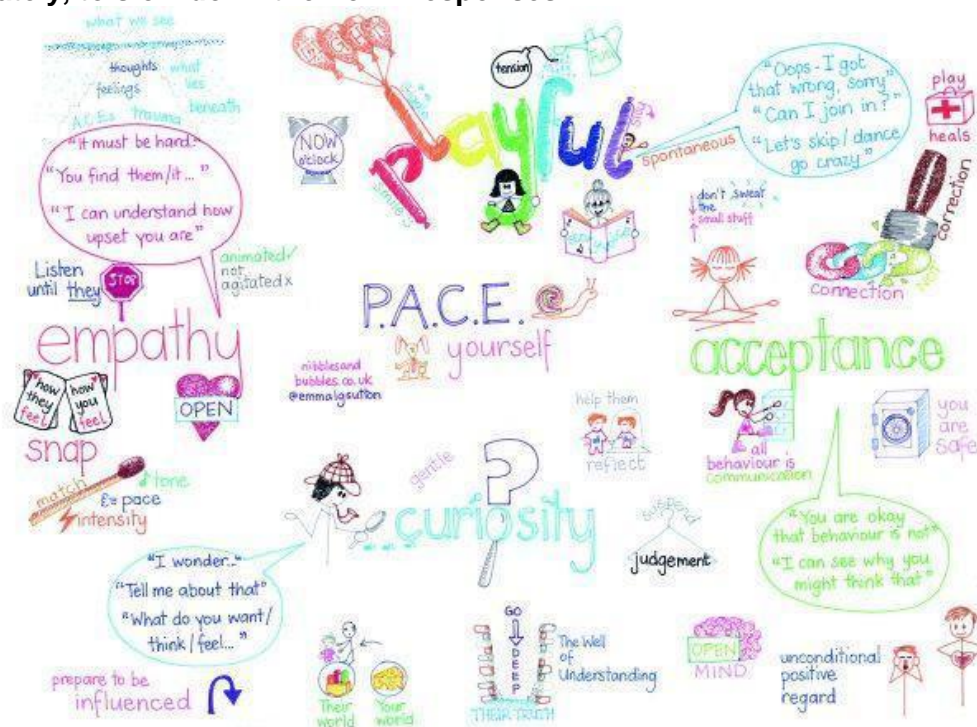 what we see
thoughts
feelings
what
lies
beneath
A.C.Es
trauma
"It must be hard."
"You find them/it... "
"I can understand how
upset you are"
Listen
until they
STOP
animated ✓
not
agitated x
empathy
how
they
feel
how
you
feel
OPEN
snap
match
tone
& pace
intensity
LIGHT
tension
fun
playful
smile
silly
NOW
o'clock
spontaneous
"Oops - I got
that wrong, sorry"
"Can I join in?"
"Let's skip/dance
go crazy"
play
heals
don't 'sweat'
the
small stuff
connection
correction
P.A.C.E.
yourself
nibblesand
bubbles.co.uk
@emmalgsutton
acceptance
help them
reflect
all
behaviour is
communication
you
are
safe
"You are okay
that behaviour is not"
"I can see why you
might think that"
gentle
?
curiosity
suspend
judgement
"I wonder.."
"Tell me about that"
"What do you want/
think/feel..."
prepare to be
influenced
Their
world
Your
world
GO
DEEP
The Well
of
Understanding
THEIR TRUTH
OPEN
MIND
unconditional
positive
regard